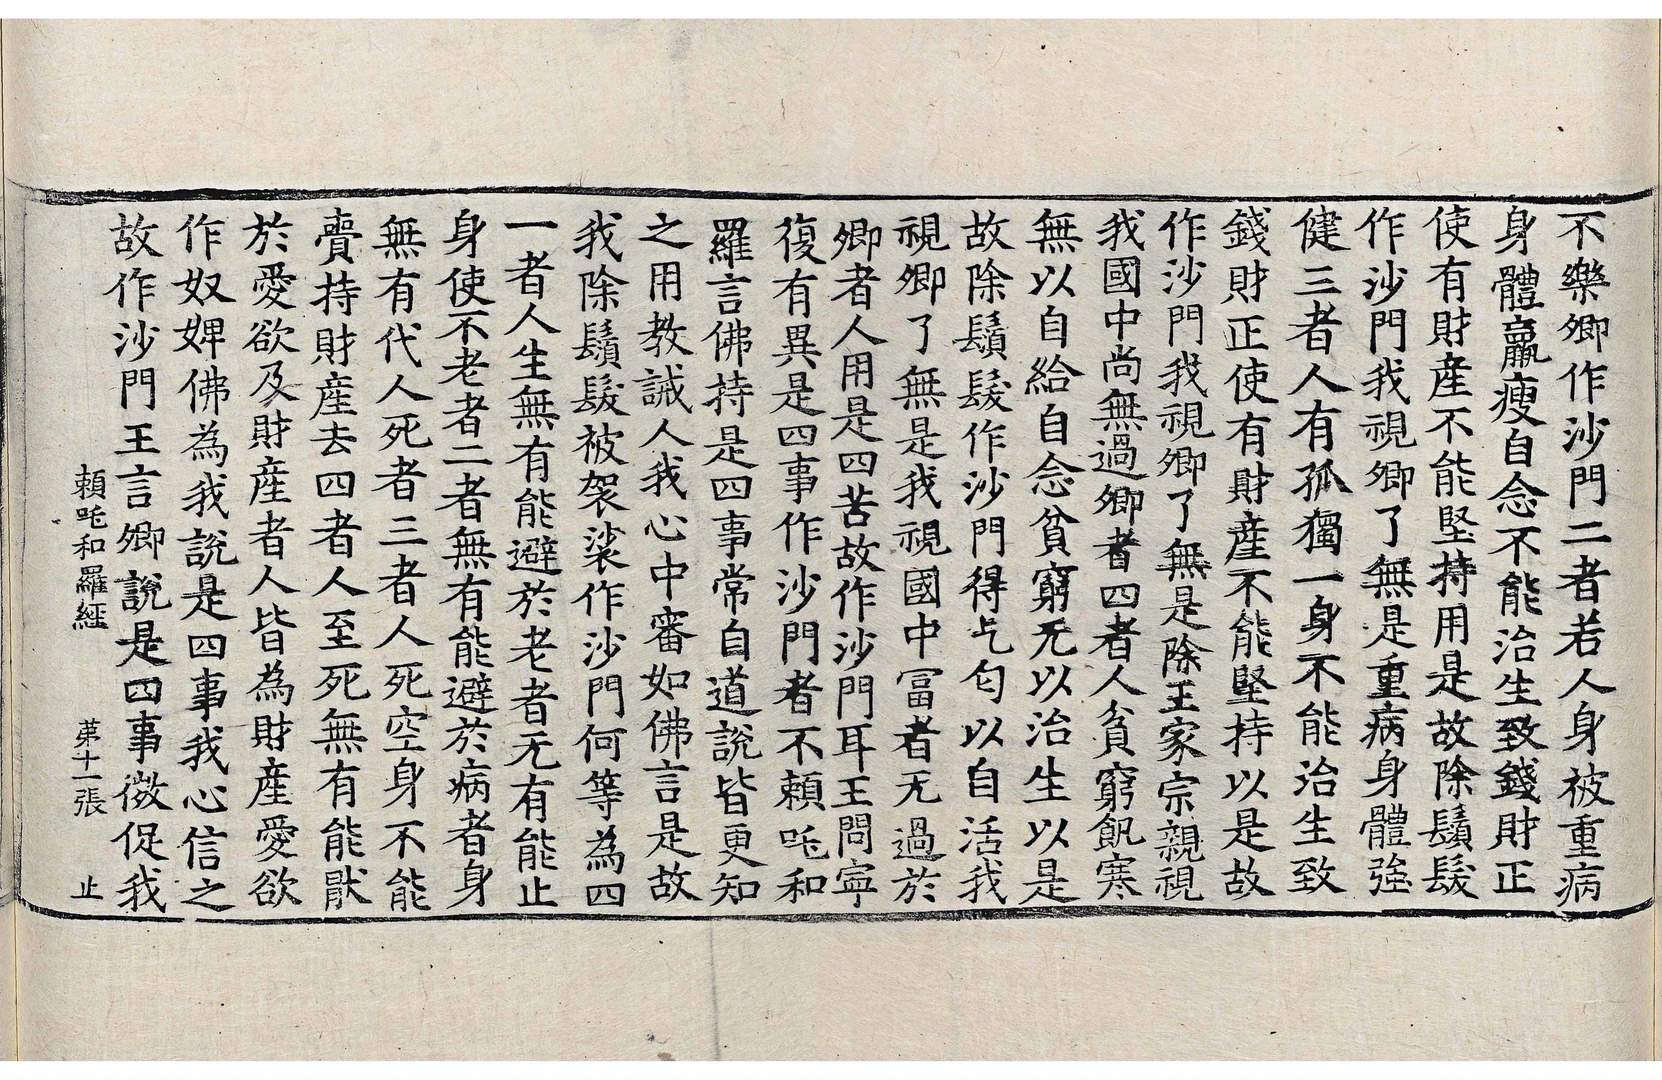 不樂卿作沙門二者若人身被重病
身體羸瘦自念不能治生致錢財正
使有財産不能堅持用是故除鬚髮
作沙門我視卿了無是重病身體強
健三者人有孤獨一身不能治生致
錢財正使有財産不能堅持以是故
作沙門我視卿了無是除王家宗親視
我國中尚無過卿者四者人貧窮飢寒
無以自給自念貧窮无以治生以是
故除鬚髮作沙門得乞匂以自活我
視卿了無是我視國中冨者无過於
卿者人用是四苦故作沙門耳王問寧
復有異是四事作沙門者不賴吒和
羅言佛持是四事常自道說皆更知
之用教誡人我心中審如佛言是故
我除鬚髮被袈裟作沙門何等為四
一者人生無有能避於老者无有能止
身使不老者二者無有能避於病者身
無有代人死者三者人死空身不能
賫持財産去四者人至死無有能猒
於愛欲及財産者人皆為財産愛欲
作奴婢佛為我說是四事我心信之
故作沙門王言卿說是四事微促我
賴吒和羅經 苐十一張 止